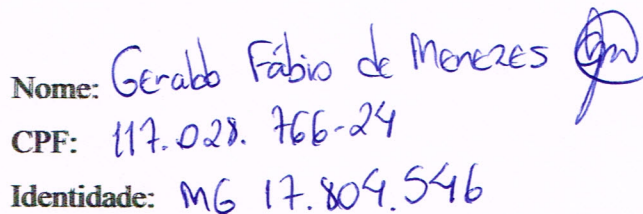 Nome: Geraldo Fábio de Menezes
CPF: 117.028.766-24
Identidade: MG 17.804.546